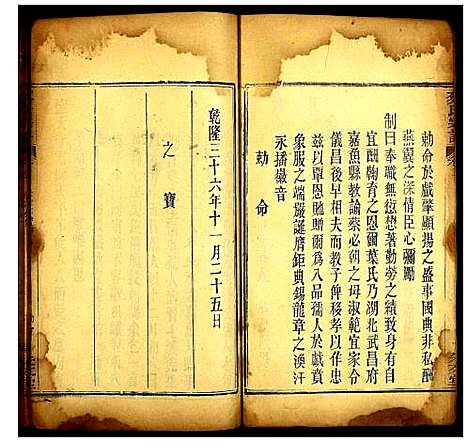 勅命於戲肇顯揚之盛事國典非私酬
燕翼之深情臣心彌勵
制曰奉職無愆懋著勤勞之績致身有自
宜酬鞠育之恩爾葉氏乃湖北武昌府
嘉魚縣教諭蔡必朝之母淑範宜家令
儀昌後早相夫而教子俾移孝以作忠
兹以覃恩貤贈爾為八品孺人於戲賁
象服之端嚴誕膺鉅典錫龍章之渙汗
永播徽音
勅命
乾隆三十六年十一月二十五日
之寶